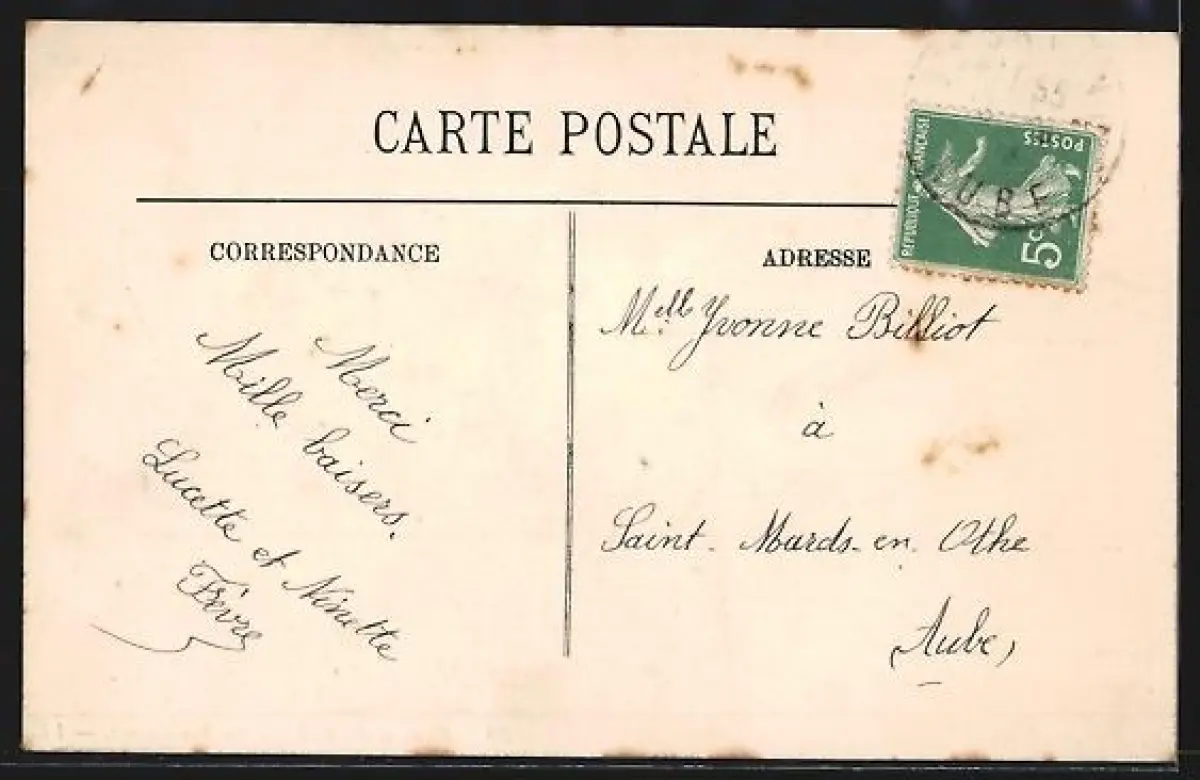 CARTE POSTALE
CORRESPONDANCE
Merci
Mille baisers.
Lucette et Ninette
Fèvre
ADRESSE
RÉPUBLIQUE FRANÇAISE
POSTES
5c
AUBE
Melle Yvonne Billiot
à
Saint-Mards-en-Othe
(Aube)